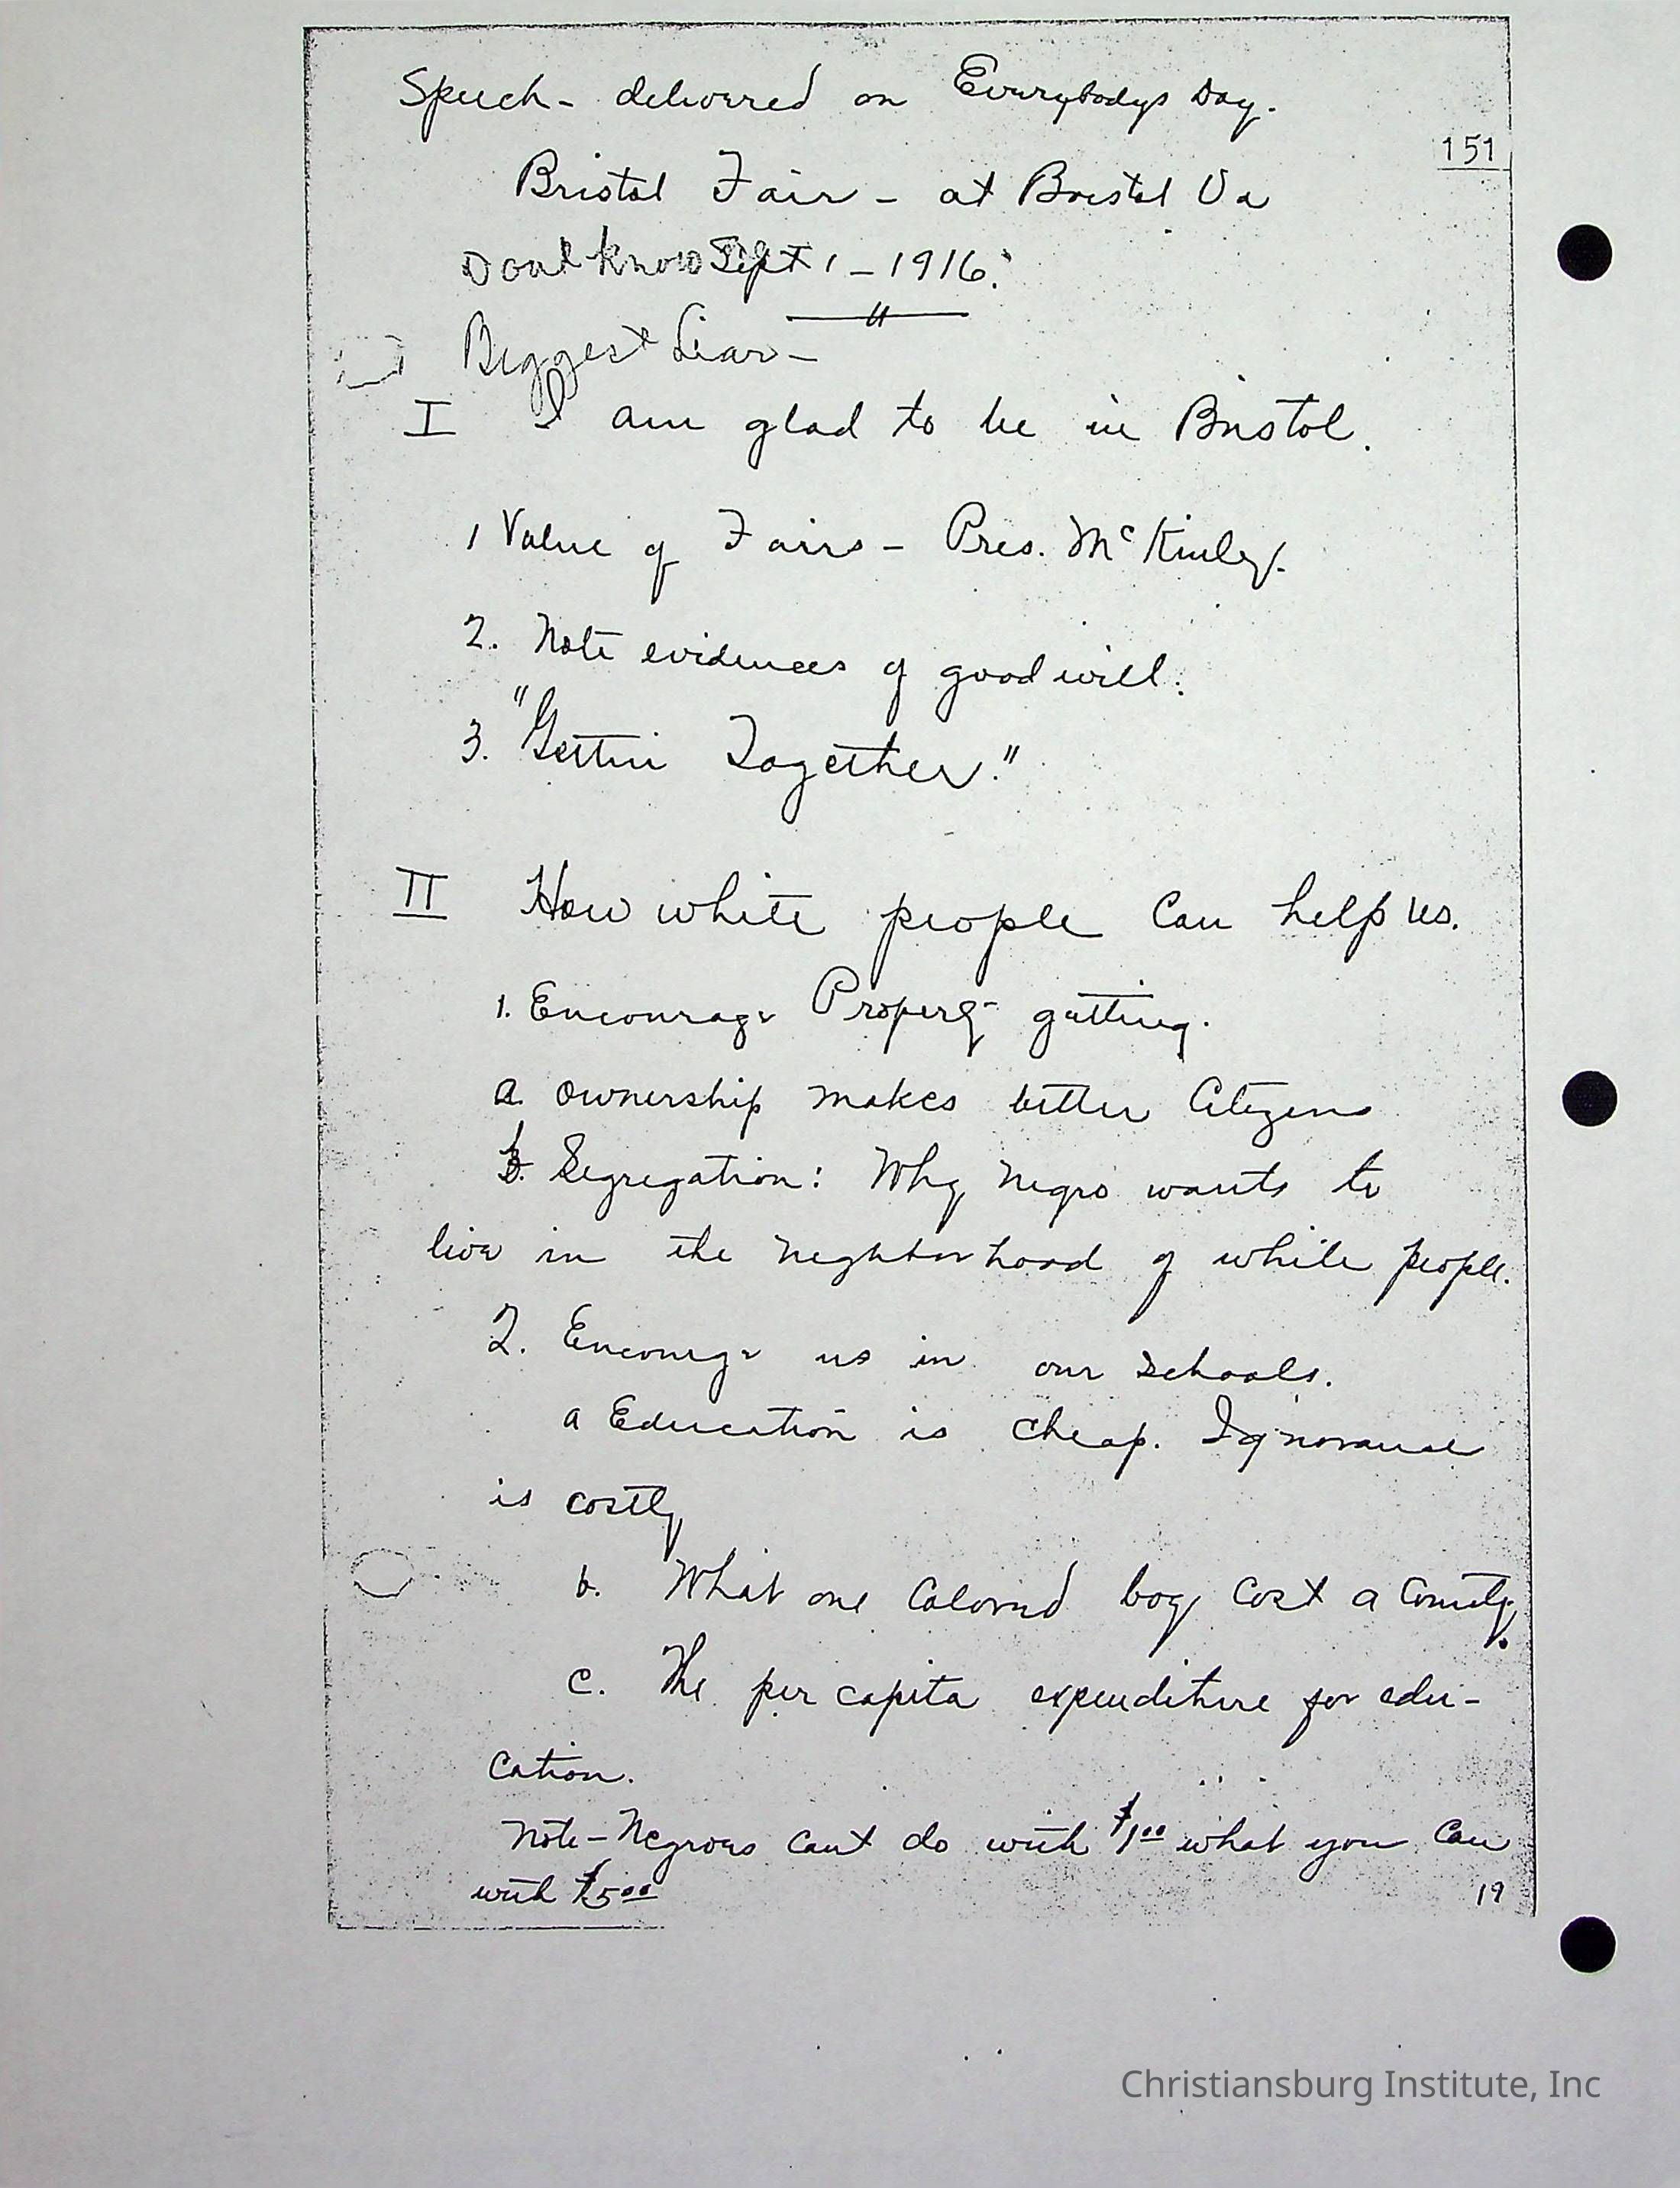 Speech - delivered on Everybodys Day.
151
Bristol Fair - at Bristol Va
Dont know Sept 1 - 1916.
Biggest Liar -
I I am glad to be in Bristol.
1 Value of Fairs - Pres. McKinley.
2. Note evidences of good will.
3. "Gettin Together."
II How white people can help us.
1. Encourage Property getting.
a. Ownership makes better Citizens
b. Segregation: Why Negro wants to
live in the neighborhood of white people.
2. Encourage us in our schools.
a Education is cheap. Ignorance
is costly
b. What one Colored boy cost a County.
c. The per capita expenditure for edu-
cation.
Note - Negroes cant do with $1.00 what you can
with $5.00
19
Christiansburg Institute, Inc